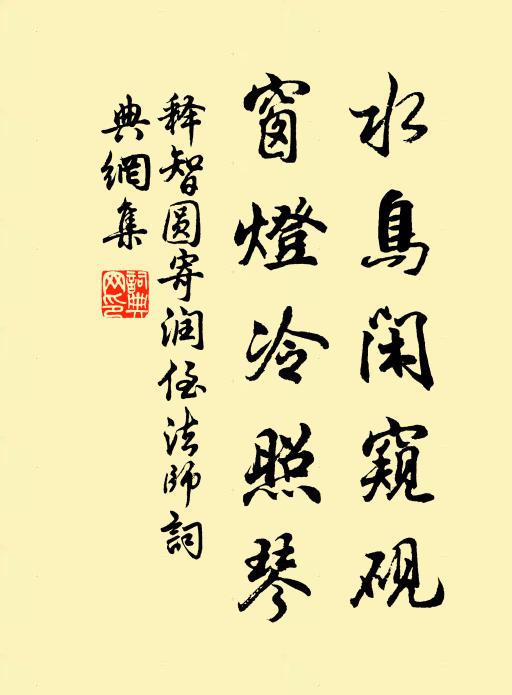 水鳥閑窺硯
窗燈冷照琴
释智圆寄润侄法師詞
典網集
詞典網印